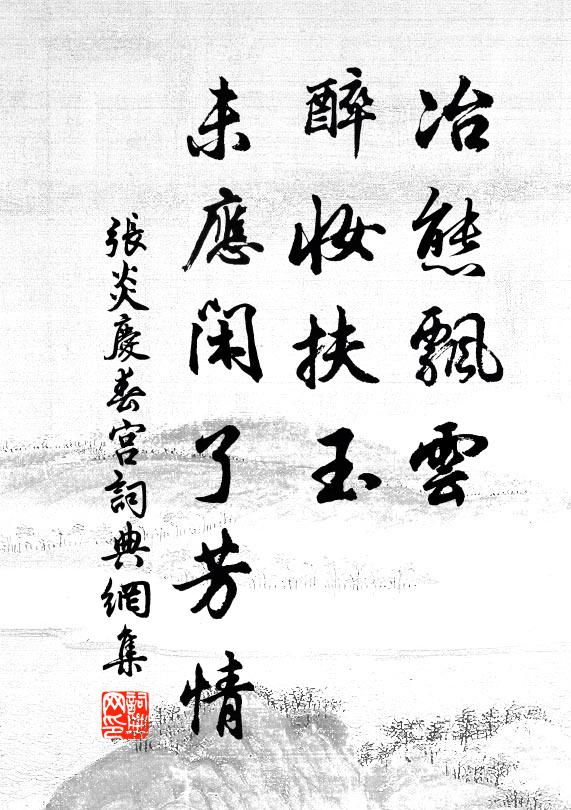 冶態飄雲
醉妆扶玉
未應閑了芳情
張炎慶春宮詞典網集